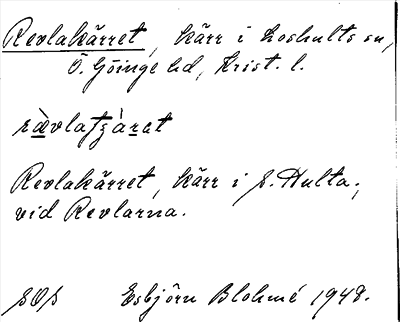 Revlakärret, kärr i Loshults sn,
Ö. Göinge hd, Krist. l.
Revlakärret, kärr i S. Hulta,
vid Revlarna.
Esbjörn Blohmé 1948.